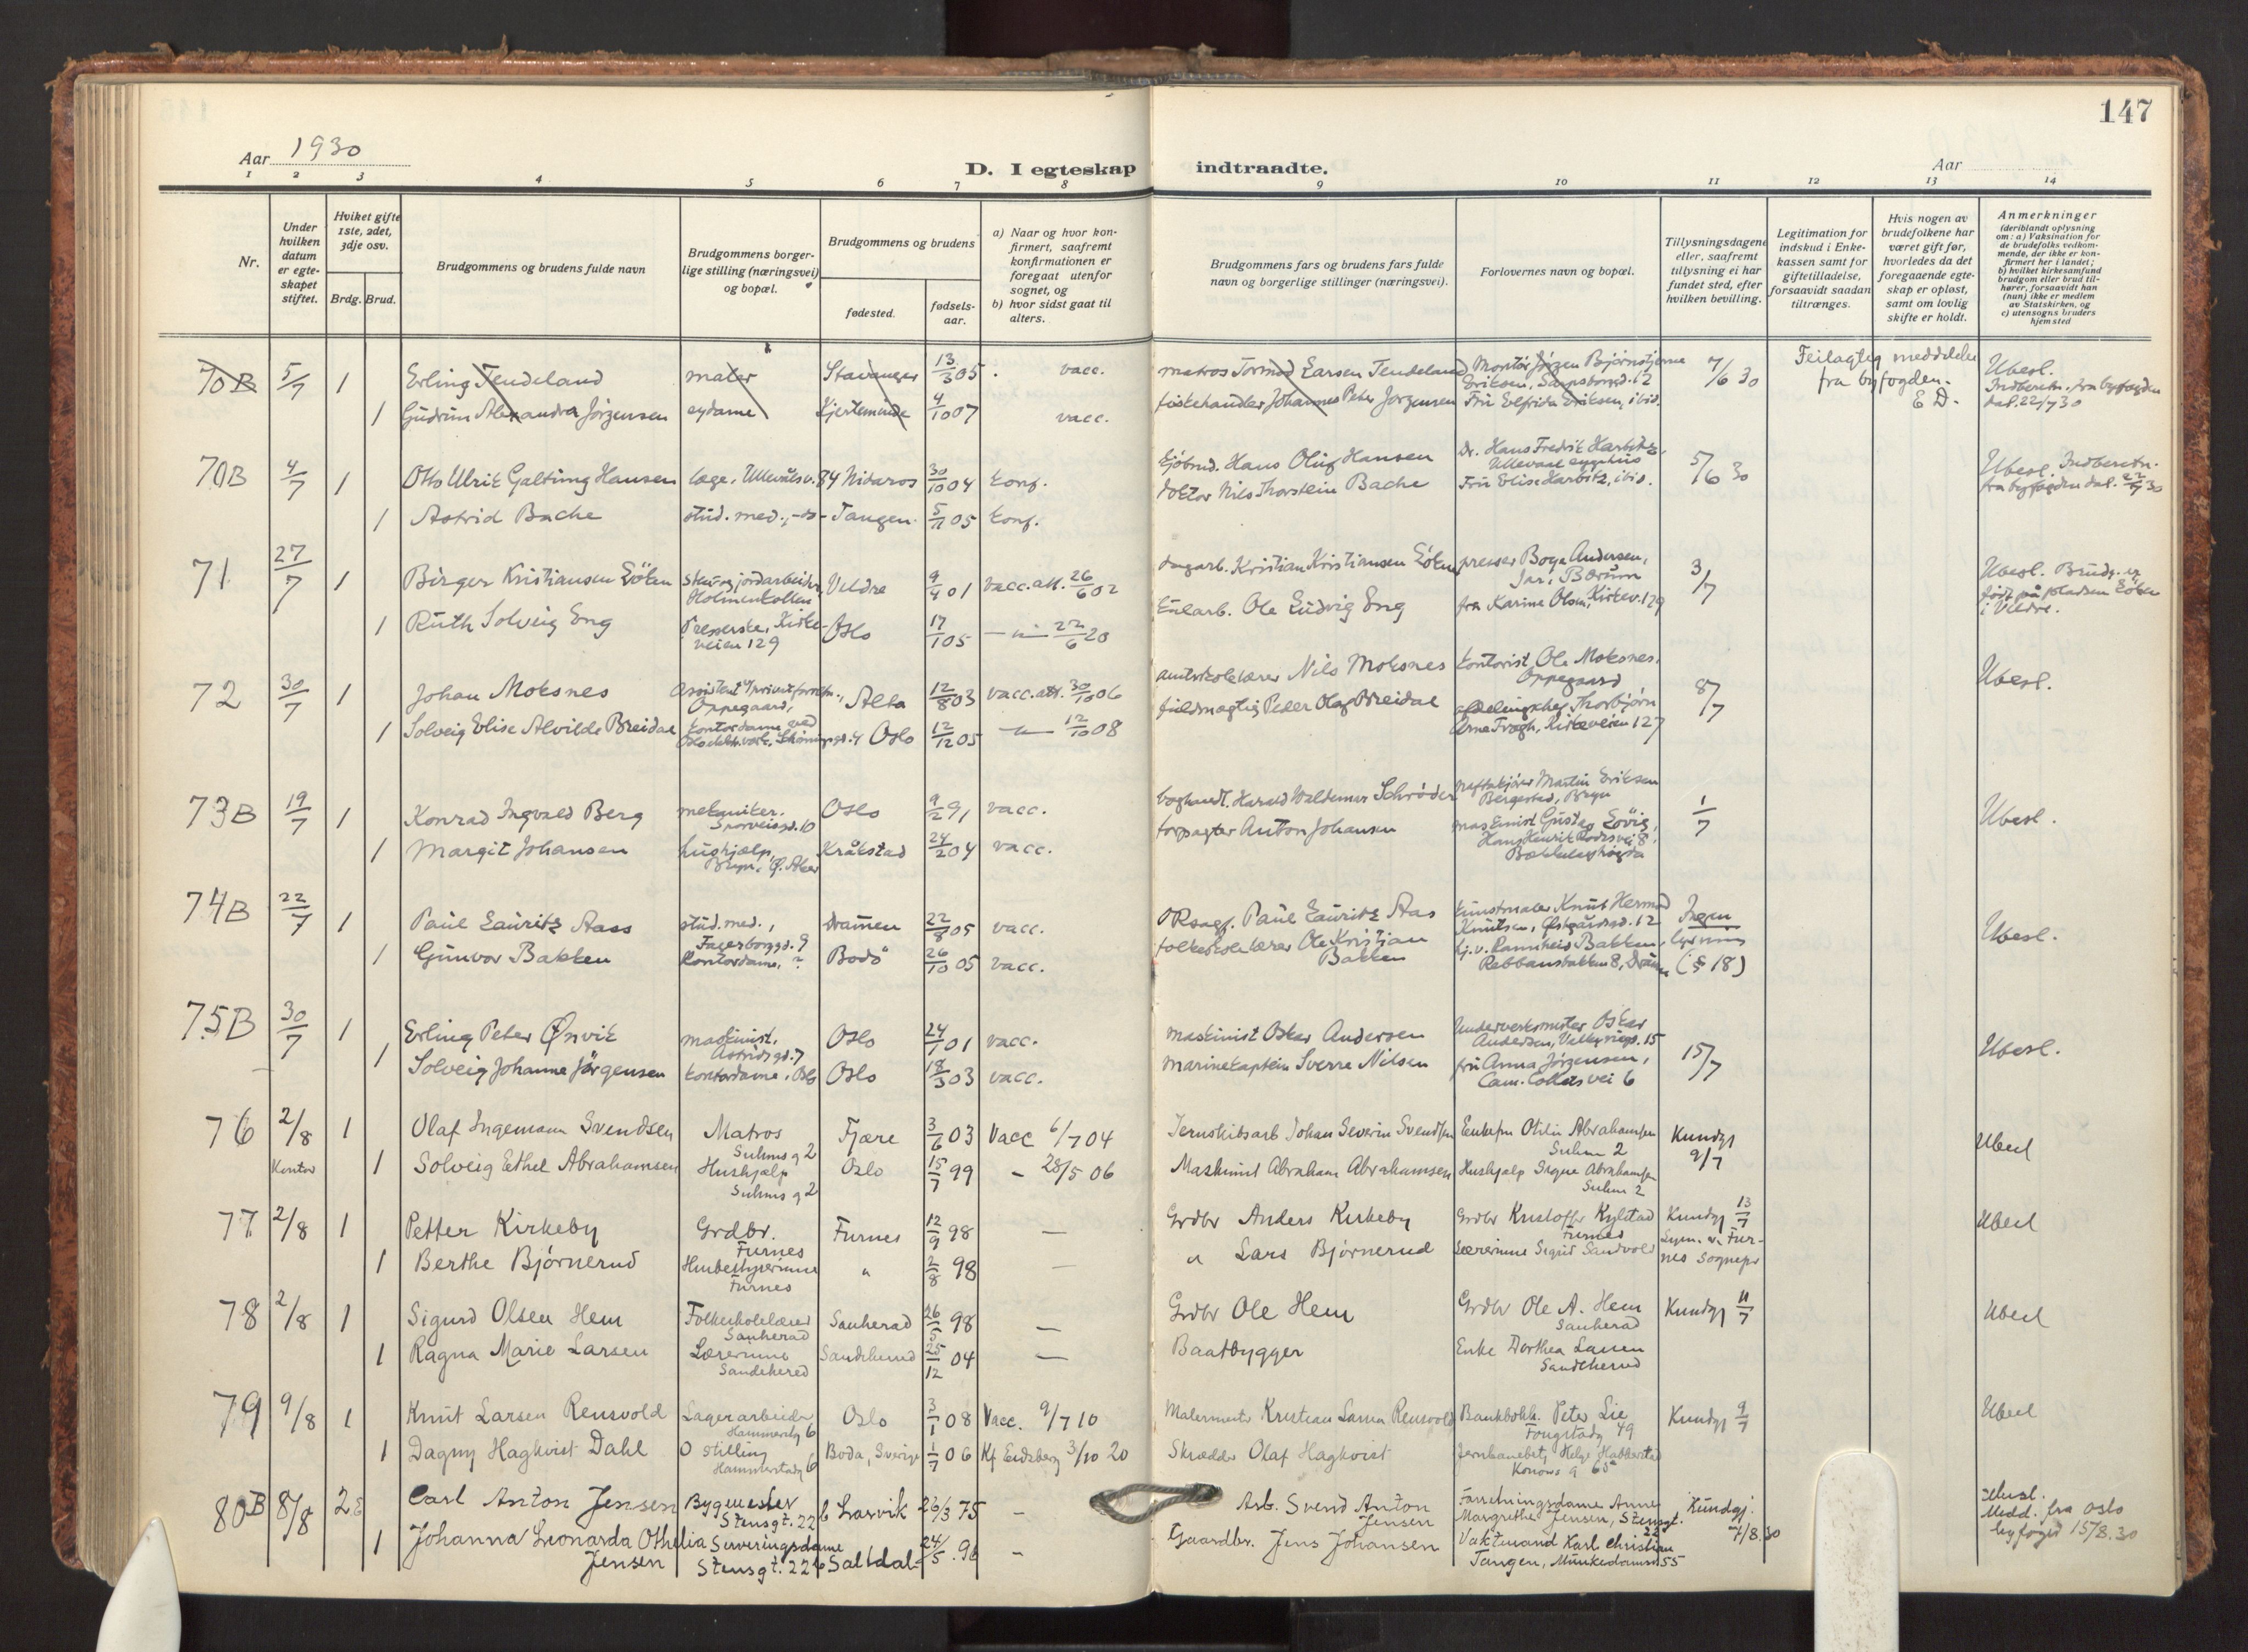 147
Aar 1930
D. I egteskap indtraadte.
Aar
1 2 3 4 5 6 7 8 9 10 11 12 13 14
Nr.
Under hvilken datum er egteskapet stiftet.
Hviket gifte 1ste, 2det, 3dje osv.
Brdg. Brud.
Brudgommens og brudens fulde navn
Brudgommens borgerlige stilling (næringsvei) og bopæl.
Brudgommens og brudens
fødested.
fødselsaar.
a) Naar og hvor konfirmert, saafremt konfirmationen er foregaat utenfor sognet, og
b) hvor sidst gaat til alters.
Brudgommens fars og brudens fars fulde navn og borgerlige stillinger (næringsvei).
Forlovernes navn og bopæl.
Tillysningsdagene eller, saafremt tillysning ei har fundet sted, efter hvilken bevilling.
Legitimation for indskud i Enkekassen samt for giftetilladelse, forsaavidt saadan tiltrænges.
Hvis nogen av brudefolkene har været gift før, hvorledes da det foregaaende egteskap er opløst, samt om lovlig skifte er holdt.
Anmerkninger (deriblandt oplysning om: a) Vaksination for de brudefolks vedkommende, der ikke er konfirmert her i landet; b) hvilket kirkesamfund brudgom eller brud tilhører, forsaavidt han (hun) ikke er medlem av Statskirken, og c) utensogns bruders hjemsted
70B 5/7 1 Erling Tendeland maler Stavanger 13/3 05 vacc. matros Tormod Larsen Tendeland Montør Jørgen Bjørnstjerne Eriksen, Sarpsborgd. 12 7/6 30 Feilagtig meddelelse fra byfogden. E D. Ubesl. Indberetn. fra byfogden dat. 22/7 30
1 Gudrun Alexandra Jørgensen sydame Kjerteminde 4/10 07 vacc. fiskehandler Johannes Peter Jørgensen Fru Elfrida Eriksen, ibid.
70B 4/7 1 Otto Ulrik Galtung Hansen læge, Ullevålsv. 84 Nidaros 30/10 04 konf. Hans Oluf Hansen Dr. Hans Fredrik Harbitz, Ullevaal sygehus 5/6 30 Ubesl. Indberetn. fra byfogden dat. 22/7 30
1 Astrid Bache stud. med., -do- Tangen 5/11 05 konf. doktor Nils Thorstein Bache Fru Elise Harbitz, ibid.
71 27/7 1 Birger Kristiansen Löken sten og jordarbeider, Holmenkollen Veldre 9/4 01 vacc. att. 26/6 02 dagarb. Kristian Kristiansen Löken presser Boye Andersen, Jar, Bærum 3/7 Ubesl. Brudg. er født på pladsen Löken i Veldre.
1 Ruth Solveig Eng Presserske, Kirkeveien 129 Oslo 17/1 05 22/6 20 kularb. Ole Ludvig Eng fru Karine Olsen, Kirkev. 129
72 30/7 1 Johan Moksnes Assistent Oppegaard, Alta 12/8 03 vacc. att. 30/10 06 amtsskolelærer Nils Moksnes kontorist Ole Moksnes, Oppegaard 8/7 Ubesl.
1 Solveig Elise Alvilde Breidal kontordame ved Oslo Oslo 12/12 05 12/10 08 fuldmægtig Peder Olaf Breidal afdelingschef Thorbjørn Arne Frogh, Kirkeveien 127
73B 19/7 1 Konrad Ingvald Berg mekaniker. Sporveisgd. 10 Oslo 9/2 91 vacc. boghandl. Harald Waldemar Schrøder Martin Eriksen Bergersted, Bryn 1/7 Ubesl.
1 Margit Johansen hushjælp, Bryn, Ø. Aker Kråkstad 24/2 04 vacc. forpagter Anton Johansen maskinist Gustav Lövig, Hans Henrik Rodes vei 8, Bækkelagshøgda
74B 22/7 1 Paul Lauritz Aass stud. med., Fagerborggd. 9 Dramen 22/8 05 vacc. ORsagf. Paul Lauritz Aas kunstmaler Knut Hermod Knutsen, Østgårdsgd. 12 Ingen lysning (§ 18) Ubesl.
1 Gunvor Bakken Kontordame, ? Bodö 26/10 05 vacc. folkeskolelærer Ole Kristian Bakken Bakken, Rebbansbakken 8, Dramen
75B 30/7 1 Erling Peter Ørsvik maskinist, Astridsgd. 7 Oslo 24/1 01 vacc. maskinist Oskar Andersen Underverksmester Oskar Andersen, Valkyriegd. 15 15/7 Ubesl.
1 Solveig Johanne Jörgensen kontordame, Oslo Oslo 18/3 03 vacc. marinekaptein Sverre Nilsen fru Anna Jørgensen, Cam. Colletts vei 6
76 2/8 1 Olaf Ingemann Svendsen Matros Suhms g 2 Fjære 3/6 03 Vacc 6/7 04 Johan Severin Svendsen Enkefru Otilie Abrahamsen Suhm 2 Kundgj 9/7 Ubesl
Kontor 1 Solveig Ethel Abrahamsen Hushjælp Suhms g 2 Oslo 15/7 99 - 28/5 06 Maskinist Abraham Abrahamsen Hushjælp Signe Abrahamsen Suhm 2
77 2/8 1 Petter Kirkeby Grdbr. Furnes Furnes 12/9 98 — Grdbr Anders Kirkeby Grdbr Kristoffer Kylstad Furnes Kundgj 13/7 Lysn. v. Furnes sognepr Ubesl
1 Berthe Bjørnerud Husbestyrerinne Furnes " 2/8 98 — " Lars Bjørnerud Lærerinne Sigrid Sandvold
78 2/8 1 Sigurd Olsen Hem Folkeskolelærer Sauherad Sauherad 26/5 98 — Grdbr Ole Hem Grdbr Ole A. Hem Sauherad Kundgj 11/7 Ubesl
1 Ragna Marie Larsen Lærerinne Sandeherred Sandeherred 25/12 04 — Baatbygger Enke Dorthea Larsen Sandeherred
79 9/8 1 Knut Larsen Rensvold Lagerarbeider Hammerstadg 6 Oslo 3/1 08 Vacc. 9/7 10 Malermester Kristian Larsen Rensvold Bankbokh. Peter Lie Fougstadg 49 Kundgj 9/7 Ubesl
1 Dagny Hagkvist Dahl O stilling Hammerstadg 6 Boda, Sverige 1/7 06 Kf Eidsberg 3/10 20 Skrædder Olaf Hagkvist Helge Konows g 65
80B 8/8 2 Carl Anton Jensen Bygmester Stensgt. 22 b Larvik 23/3 75 - Arb. Svend Anton Jensen Forretningsdame Anne Margrethe Jensen, Stensgt. 22 Kundgj. 7/8.30 Ubesl. Medd. fra Oslo byfoged 15/8.30
1 Johanna Leonarda Othelia Jensen Serveringsdame Stensgt. 22 b Saltdal 24/5 .96 - Gaardbr. Jens Johansen Vaktmand Karl Christian Tangen, Munkedamsv. 55